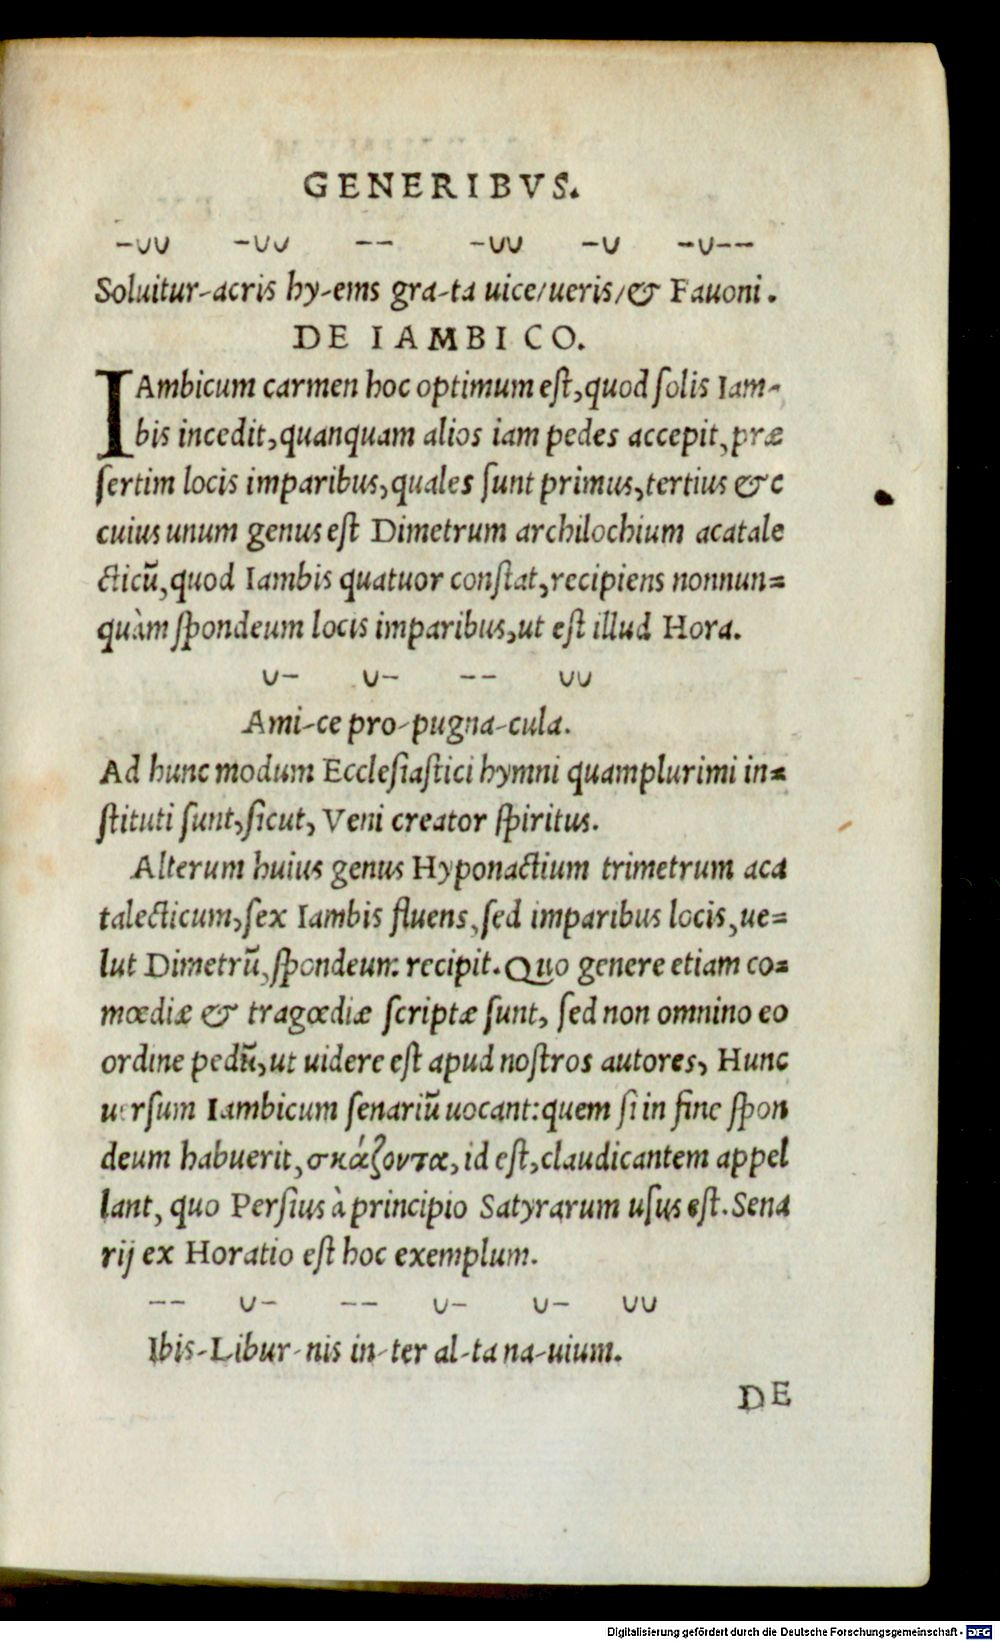 GENERIBVS.
-∪∪ -∪∪ -- -∪∪ -∪ -∪--
Soluitur-acris hy-ems gra-ta uice/ueris/& Fauoni.
DE IAMBICO.
IAmbicum carmen hoc optimum eſt,quod ſolis Iam-
bis incedit,quanquam alios iam pedes accepit,præ
ſertim locis imparibus,quales ſunt primus,tertius &c
cuius unum genus eſt Dimetrum archilochium acatale
cticū,quod Iambis quatuor conſtat,recipiens nonnun=
quàm ſpondeum locis imparibus,ut eſt illud Hora.
∪- ∪- -- ∪∪
Ami-ce pro-pugna-cula.
Ad hunc modum Eccleſiaſtici hymni quamplurimi in=
ſtituti ſunt,ſicut, Veni creator ſpiritus.
Alterum huius genus Hyponactium trimetrum aca
talecticum,ſex Iambis fluens,ſed imparibus locis,ue=
lut Dimetrū,ſpondeum recipit.Quo genere etiam co=
mœdiæ & tragœdiæ ſcriptæ ſunt, ſed non omnino eo
ordine pedū,ut uidere eſt apud noſtros autores, Hunc
uerſum Iambicum ſenariū uocant:quem ſi in fine ſpon
deum habuerit,σκάζοντα,id eſt,claudicantem appel
lant, quo Perſius à principio Satyrarum uſus eſt.Sena
rij ex Horatio eſt hoc exemplum.
-- ∪- -- ∪- ∪- ∪∪
Ibis-Libur-nis in-ter al-ta na-uium.
DE
Digitalisierung gefördert durch die Deutsche Forschungsgemeinschaft - DFG